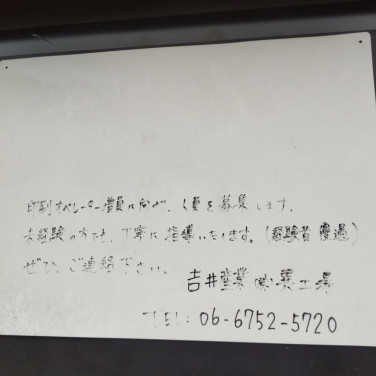 印刷オペレーター増員に向け、人員を募集します。
未経験の方でも、丁寧に指導いたします。(経験者優遇)
ぜひ、ご連絡下さい。
吉井産業㈱ 工場
TEL: 06-6752-5720